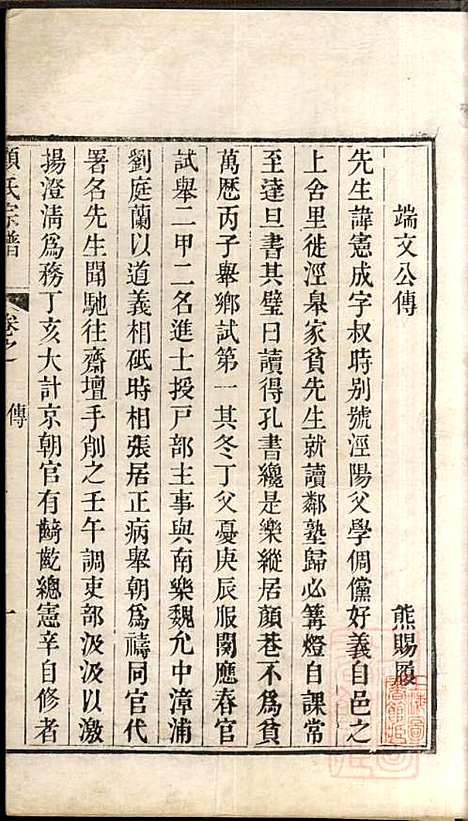 端文公傳
熊賜履
先生諱憲成字叔時别號涇陽父學倜儻好義自邑之
上舍里徙涇臯家貧先生就讀鄰塾歸必篝燈自課常
至達旦書其璧曰讀得孔書纔是樂縱居顔巷不爲貧
萬歷丙子舉鄉試第一其冬丁父憂庚辰服闋應春官
試舉二甲二名進士授戸部主事與南樂魏允中漳浦
劉庭蘭以道義相砥時相張居正病舉朝爲禱同官代
署名先生聞馳往齋壇手削之壬午調吏部汲汲以激
揚澄淸爲務丁亥大計京朝官有齮齕總憲辛自修者
顧氏宗譜
卷之
傳
一